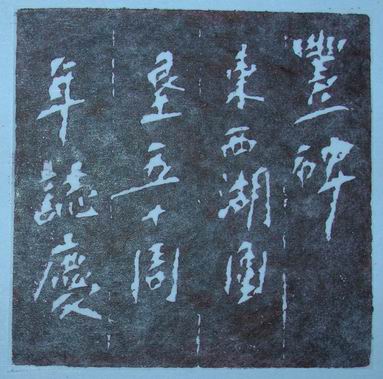 豐碑
東西湖圍
墾五十周
年誌慶